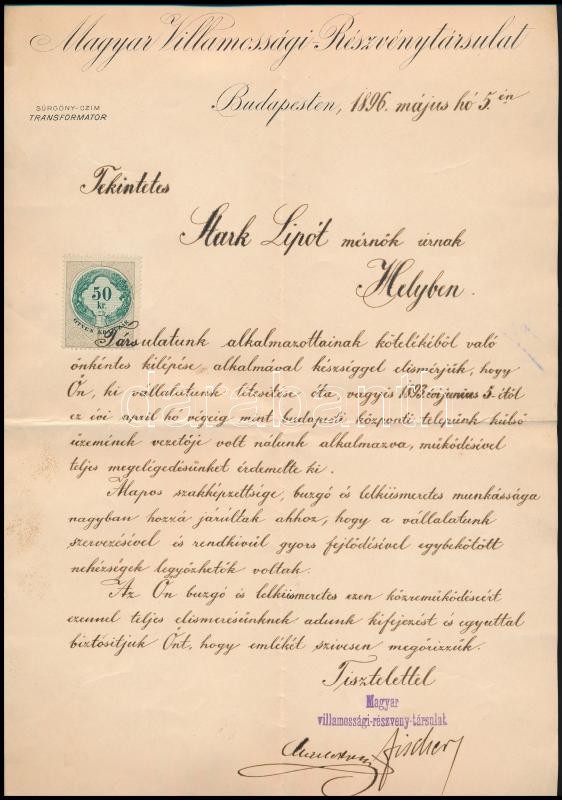 Magyar Villamossági-Részvénytársulat
Budapesten, 1896. május hó 5.én
SÜRGÖNY-CZIM
TRANSFORMATOR
Tekintetes
Stark Lipót mérnök úrnak
Helyben.
50
kr.
Társulatunk alkalmazottainak kötelékéből való
önkéntes kilépése alkalmával készséggel elismérjük, hogy
Ön, ki vállalatunk létesitése óta vagyis 1893 évi junius 5.étől
ez évi april hó végéig mint budapesti központi telepünk külső
üzemének vezetője volt nálunk alkalmazva, működésével
teljes megelégedésünket érdemelte ki.
Alapos szakképzettsége, buzgó és lelkiismeretes munkássága
nagyban hozzá járultak ahhoz, hogy a vállalatunk
szervezésével és rendkivül gyors fejlődésével egybekötött
nehézségek legyőzhetők voltak.
Az Ön buzgó és lelkiismeretes ezen közreműködéseért
ezennel teljes elismerésünknek adunk kifejezést és egyuttal
biztósitjuk Önt, hogy emlékét szivesen megőrizzük.
Tisztelettel
Magyar
villamossági-részvény-társulat.
Fischer
darabanth